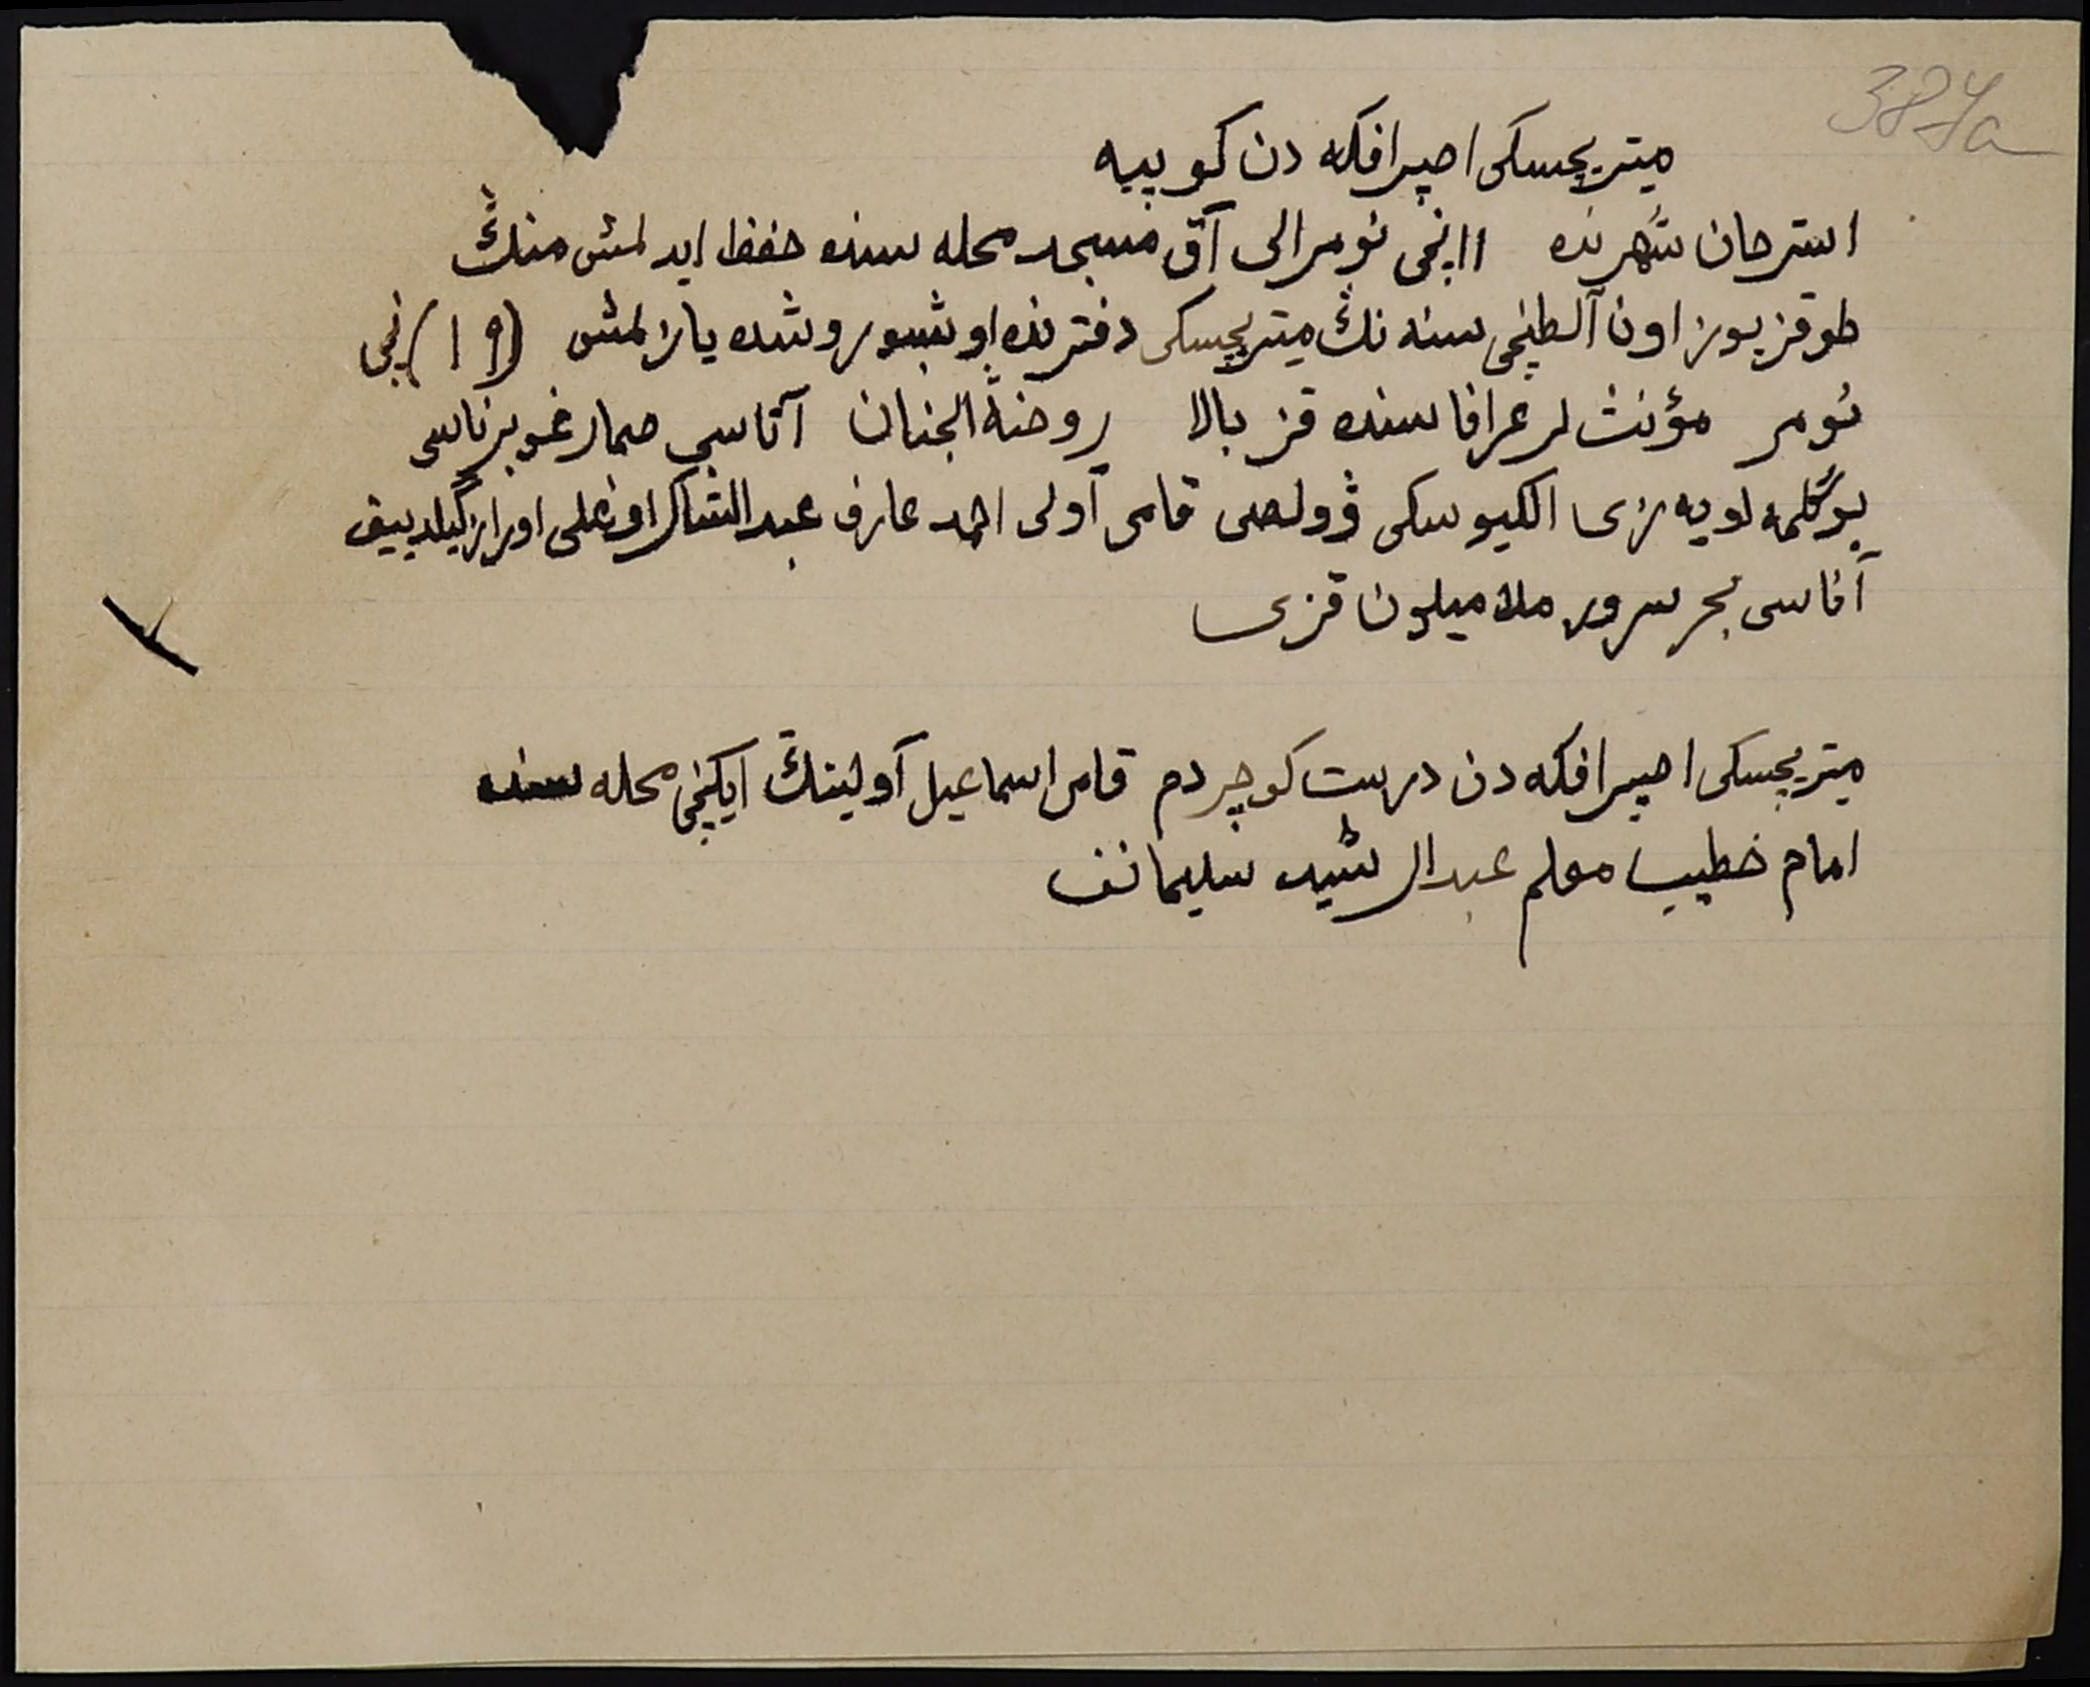 387а
ميتريچسكی اصپرافكه دن كوپيه
استرحان شهرنده ١١نچی نومرالی آق مسجد محله سنده حفظ ايدلمش منڭ
طوقزيوز اون آلطنچی سنه نڭ ميتريچسكی دفترنده اوشبو روشده يازلمش (١٩)نچی
نومر مؤنث لر غرافاسنده قز بالا روضة الجنان آتاسی صمار غوبرناسی
بوگلمه اويه زی الكيوسكی ڤولصی قامی آولی احمد عارف عبدالشاكر اوغلی اورازگيلدييف
آناسی بحرسرور ملاميلون قزی
ميتريچسكی اصپرافكه دن درست كوچردم قامی اسماعيل آولينڭ ايكنچی محله سنده
امام خطيب معلم عبدالرشيد سليمانف